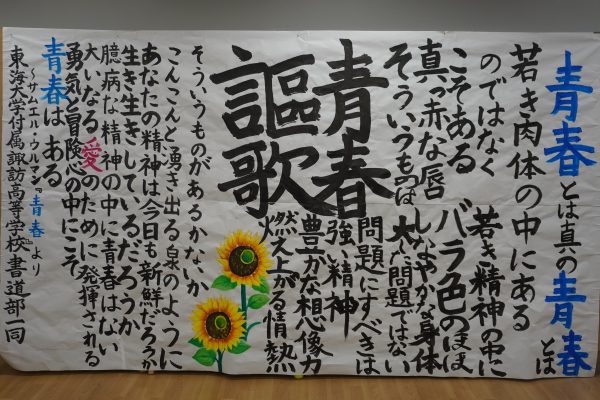 青春とは真の青春とは
若き肉体の中にある
のではなく 若き精神の中に
こそある バラ色のほほ
真っ赤な唇 しなやかな身体
そういうものは 大した問題ではない
問題にすべきは
強い精神
豊かな想像力
燃え上がる情熱
青春
謳歌
そういうものがあるかないか
こんこんと湧き出る泉のように
あなたの精神は今日も新鮮だろうか
生き生きしているだろうか
臆病な精神の中に青春はない
大いなる愛のために発揮される
勇気と冒険心の中にこそ
青春はある
〜サムエル・ウルマン『青春』より
東海大学付属諏訪高等学校 書道部一同